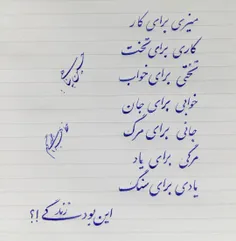 میزی برای کار
کاری برای تخت
تختی برای خواب
خوابی برای جان
جانی برای مرگ
مرگی برای یاد
یادی برای سنگ
این بود زندگی !؟